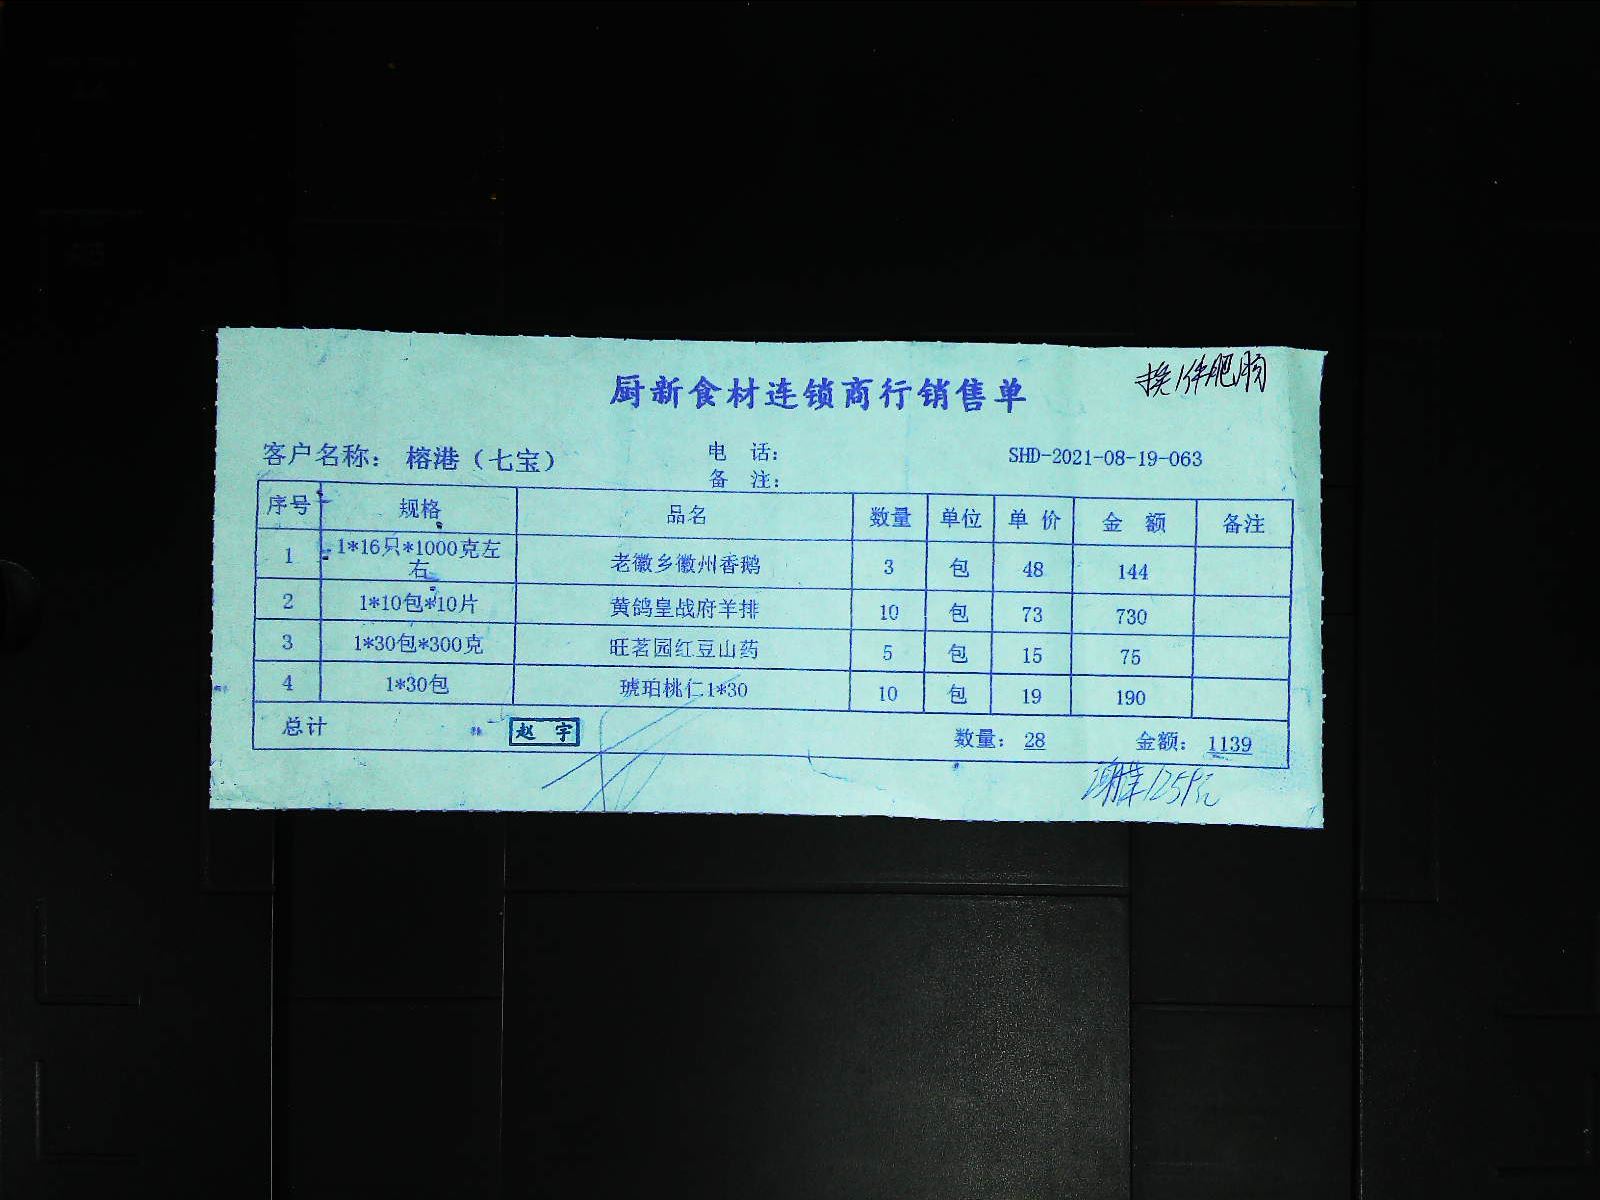 换1件肥肠
厨新食材连锁商行销售单
客户名称： 榕港（七宝） 电 话： SHD-2021-08-19-063
备 注：
序号 规格 品名 数量 单位 单 价 金 额 备注
1 1*16只*1000克左右 老徽乡徽州香鹅 3 包 48 144
2 1*10包*10片 黄鸽皇战府羊排 10 包 73 730
3 1*30包*300克 旺茗园红豆山药 5 包 15 75
4 1*30包 琥珀桃仁1*30 10 包 19 190
总计 赵 宇 数量： 28 金额： 1139